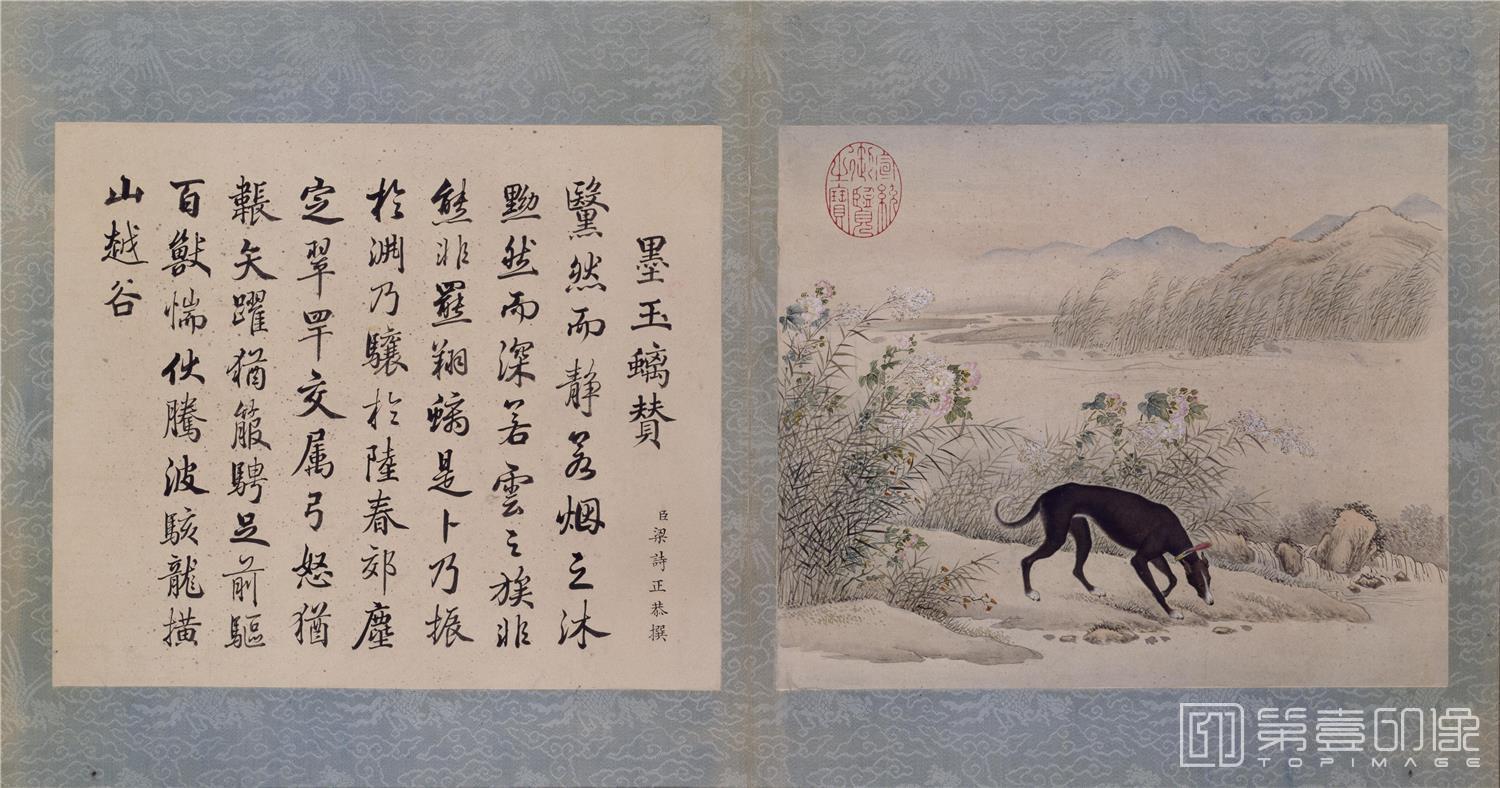 墨玉螭赞
臣梁詩正恭撰
黳然而静若烟之沐
黝然而深若雲之簇非
熊非羆翔螭是卜乃振
於淵乃驤於陸春郊塵
定翠罕交属弓怒猶
韔矢躍猶箙騁足前驅
百獸惴伏騰波駭龍横
山越谷
淳統
御覽
之寶
第壹印像
TOPIMAGE